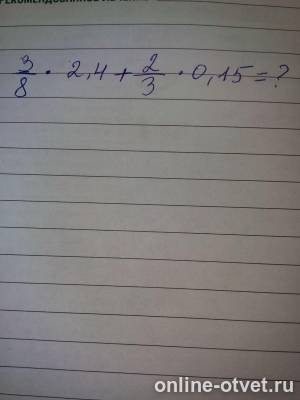 3/8 · 2,4 + 2/3 · 0,15 = ?
online-otvet.ru